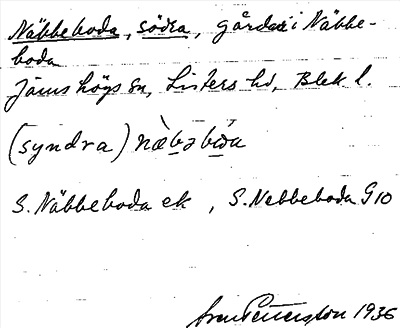 Näbbeboda, södra, gårdar i Näbbe-
boda
Jämshögs sn, Listers hd, Blek l.
(syndra) næ̀bəbo̤da
S. Näbbeboda ek , S. Nebbeboda G10
Sven Pettersson 1936